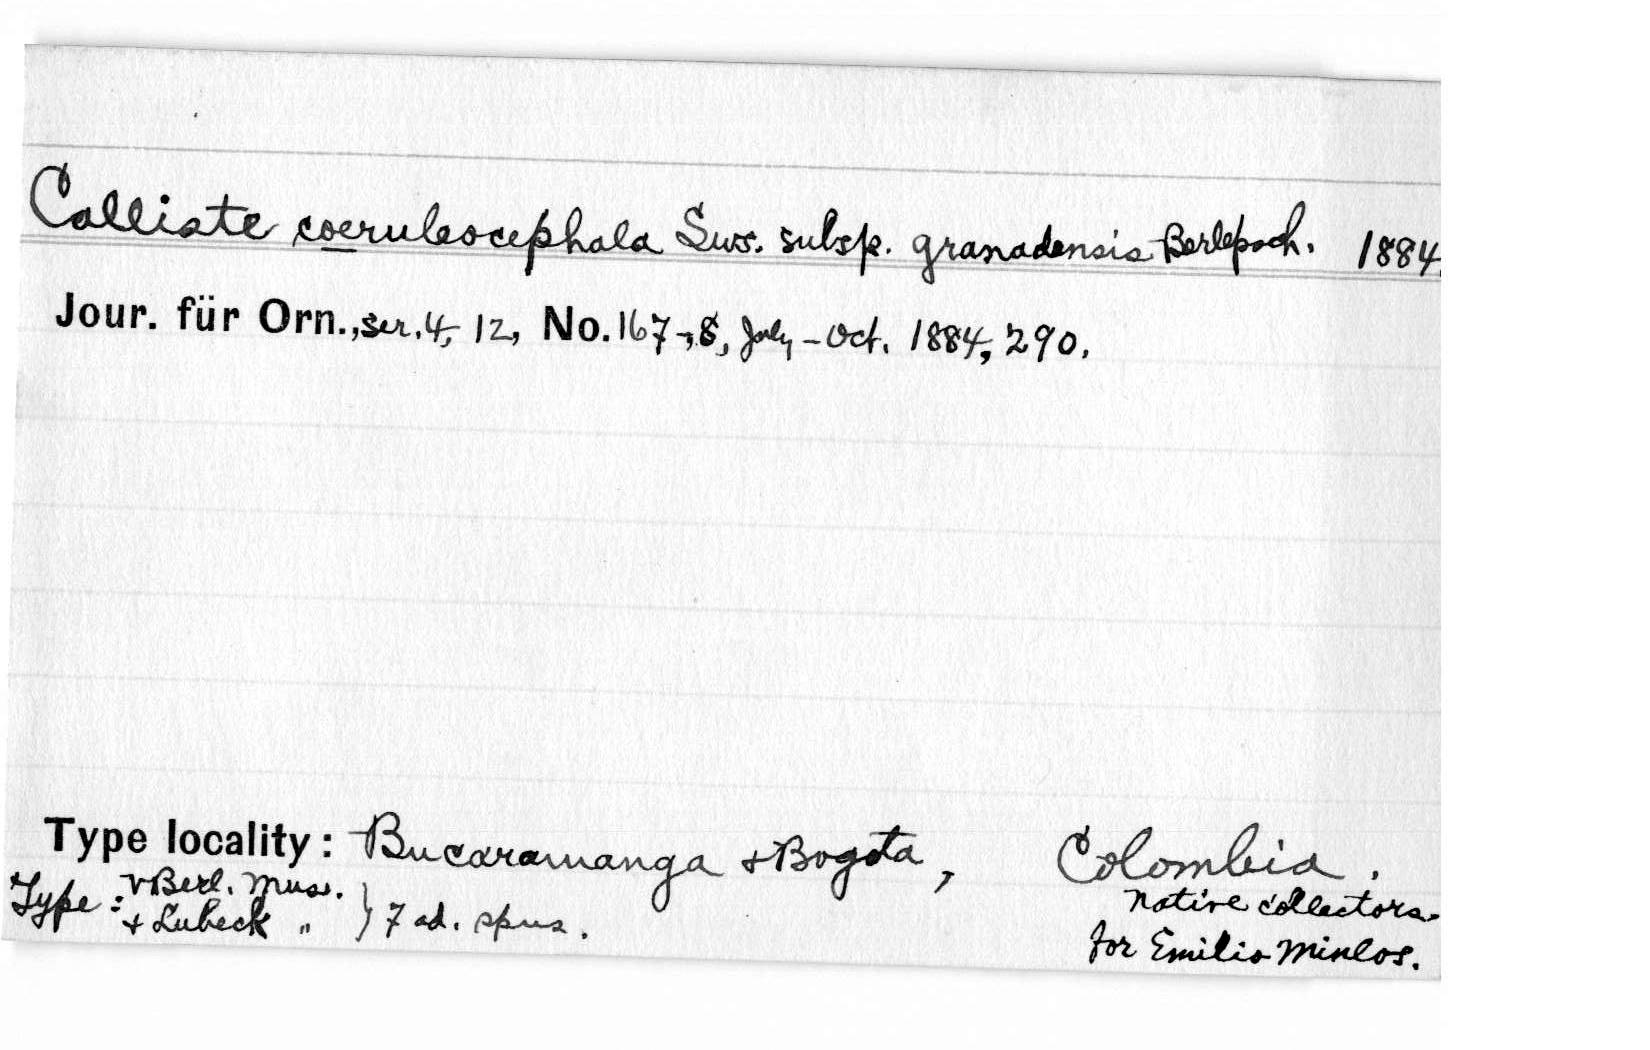 Calliste coeruleocephala Sws. subsp. granadensis Berlepsch. 1884.
Jour. für Orn., ser. 4, 12, No. 167-8, July-Oct. 1884, 290.
Type locality: Bucaramanga + Bogota, Colombia.
Type: v Berl. Mus. } 7 ad. spms.
+ Lubeck "
native collectors
for Emilio Minlos.